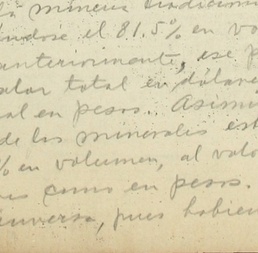 la minería tradicional
ndose el 81.5% en vo
anteriormente, ese p
alor total en dólare
al en pesos. Asimi
de los minerales est
% en volumen, al valo
es como en pesos.
inversa, pues habien